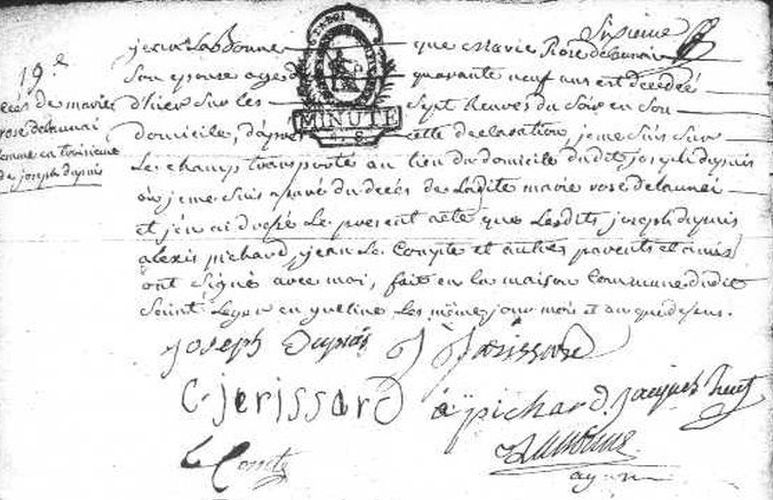 Sixieme
19e
decés de marie
rose delaunai
femme en troisieme
de joseph dupuis
jean Labonne que Marie Rose delaunai
Son epouse agée de quarante neuf ans est decedée
d'hier Sur les Sept heures du Soir en Son
domicile, d'après cette declaration, je me Suis Sur
Le champ transporté au lieu du domicile dudit joseph dupuis
où je me Suis assuré du decés de Ladite marie rose delaunai
et j'en ai dressé Le present acte que Lesdits joseph dupuis
alexis pichard, jean Le Compte et autres parents et amis
ont Signé avec moi, fait en la maison Commune dudit
Saint Leger en yveline Les même jour mois et an que dessus.
MINUTE
joseph Dupuis J Jerissard
C. jerissard a pichard jacques huet
Le Comte